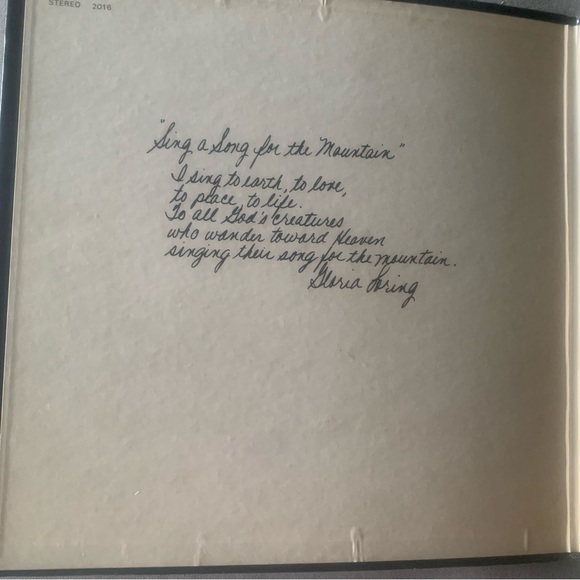 STEREO 2016
"Sing a Song for the Mountain"
I sing to earth, to love,
to peace, to life.
To all God's creatures
who wander toward Heaven
singing their song for the mountain.
Gloria Loring